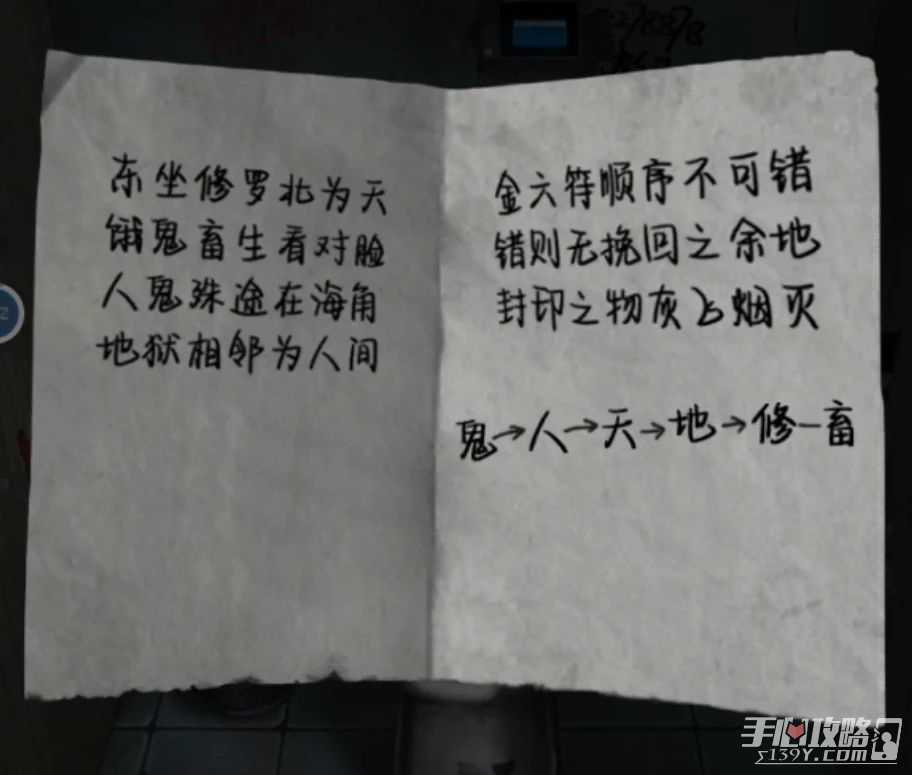 东坐修罗北为天
饿鬼畜生看对脸
人鬼殊途在海角
地狱相邻为人间
金六符顺序不可错
错则无挽回之余地
封印之物灰飞烟灭
鬼→人→天→地→修—畜
手心攻略
5139Y.COM